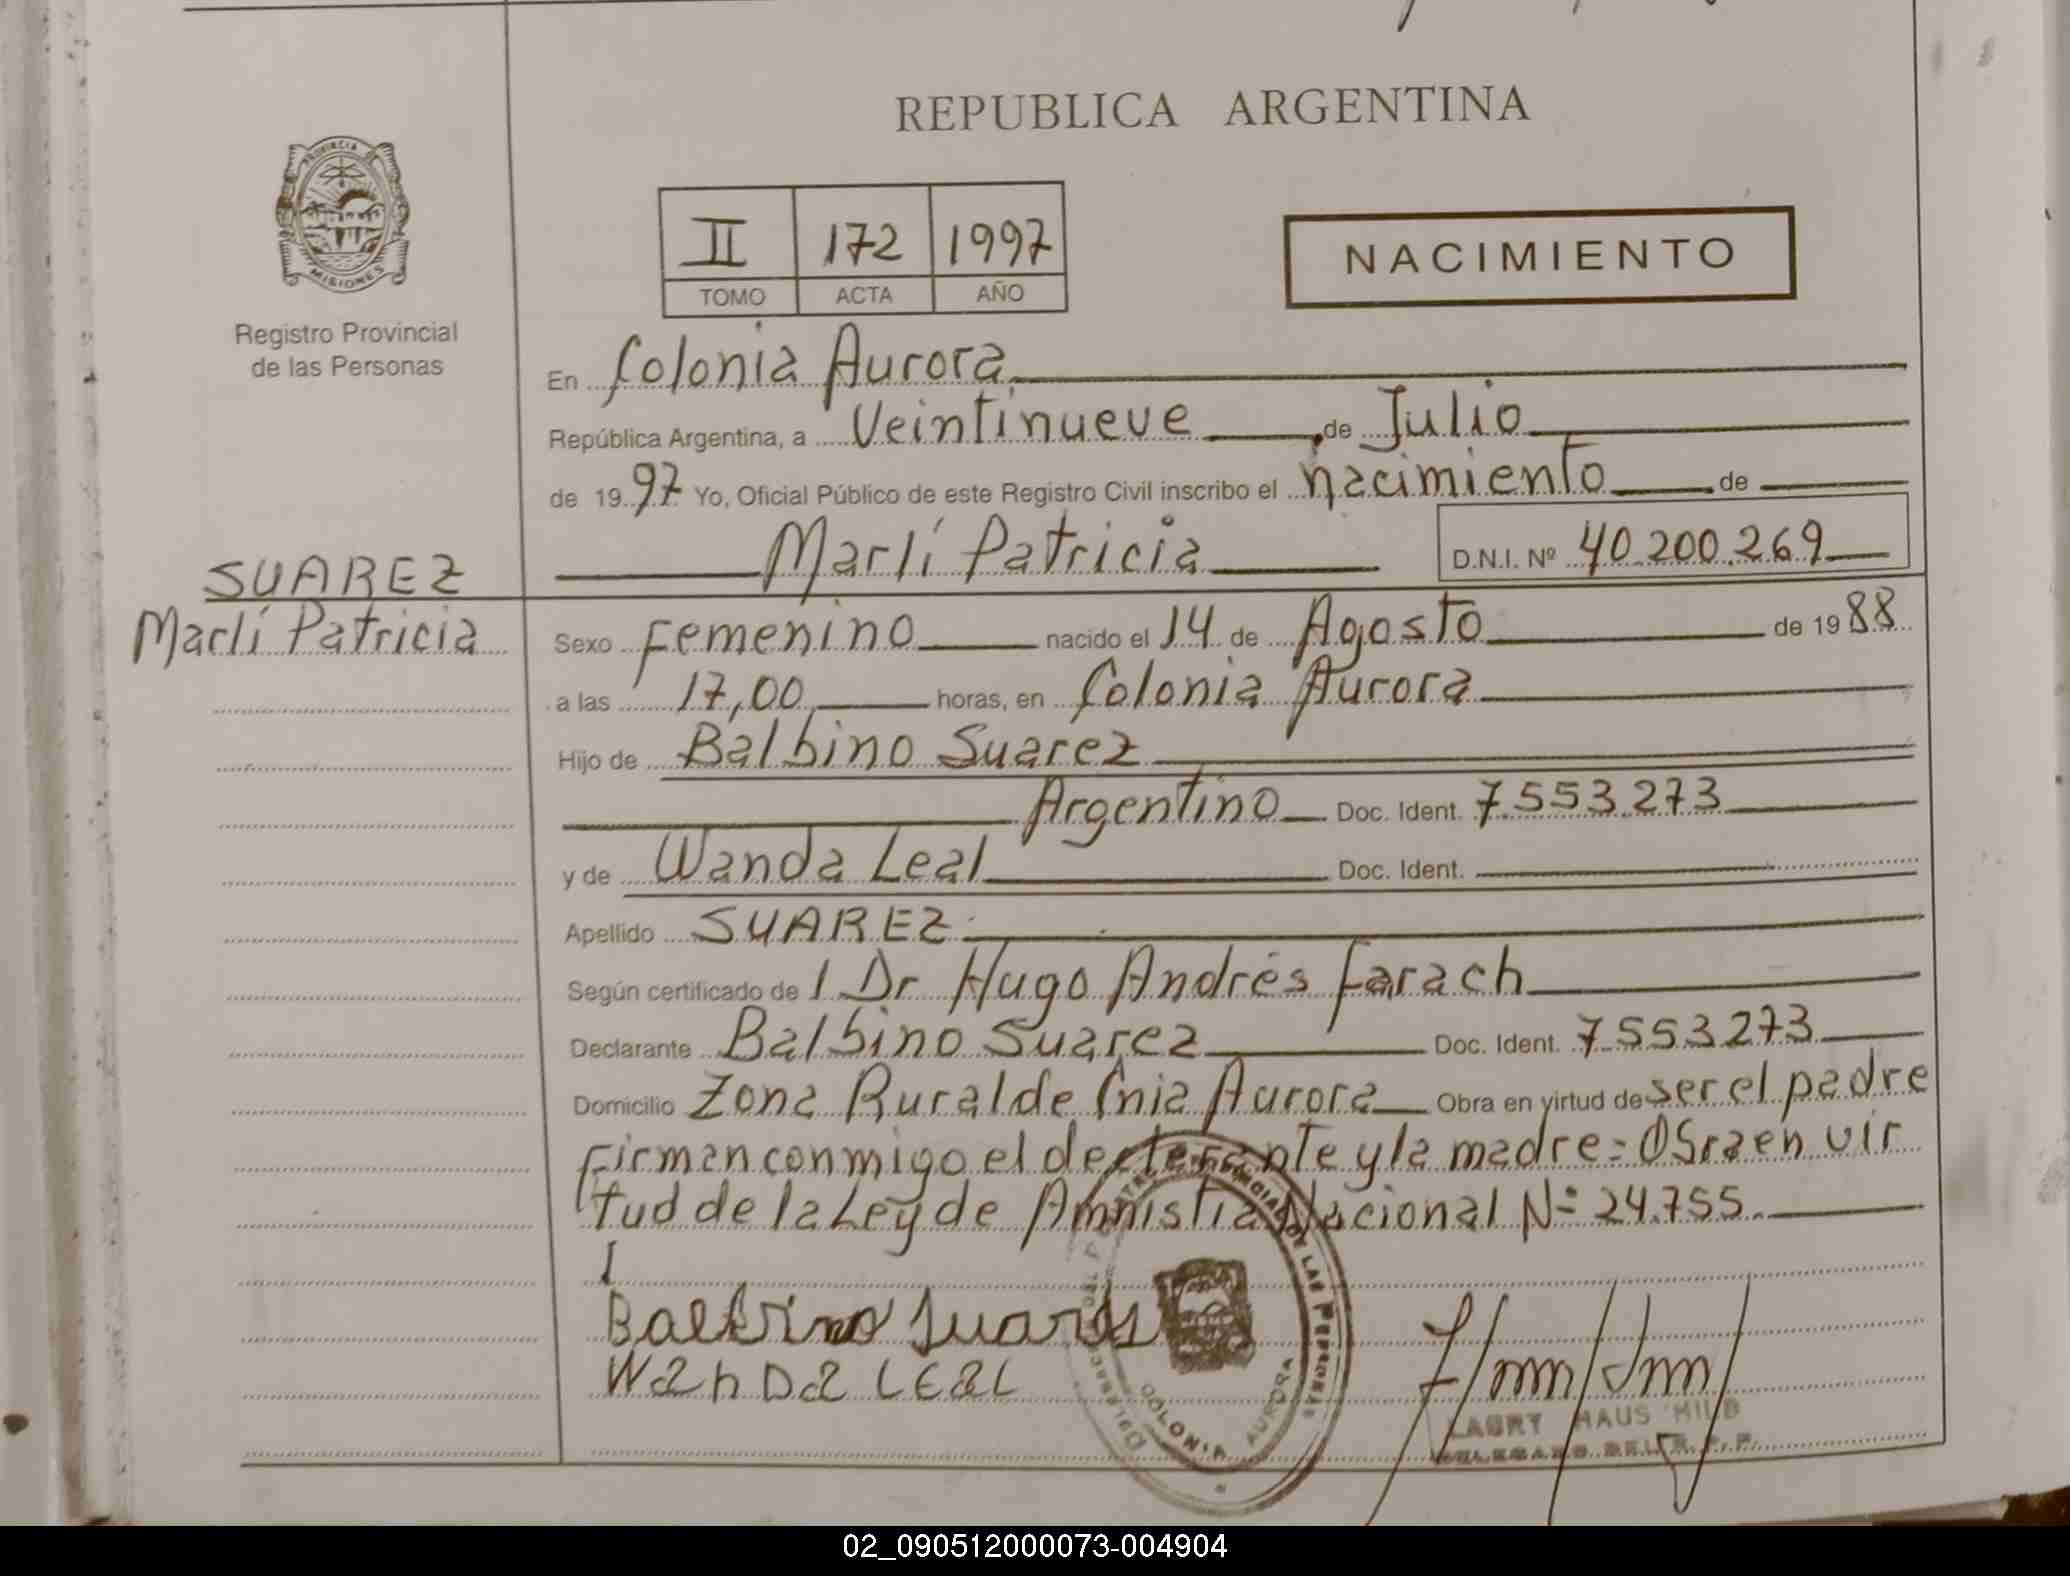 REPUBLICA ARGENTINA
PROVINCIA DE MISIONES
Registro Provincial
de las Personas
II 172 1997
TOMO ACTA AÑO
NACIMIENTO
En Colonia Aurora
República Argentina, a Veintinueve de Julio
de 1997 Yo, Oficial Público de este Registro Civil inscribo el nacimiento de
Marlí Patricia D.N.I. Nº 40.200.269
SUAREZ
Marlí Patricia
Sexo Femenino nacido el 14 de Agosto de 1988
a las 17,00 horas, en Colonia Aurora
Hijo de Balbino Suarez
Argentino Doc. Ident. 7.553.273
y de Wanda Leal Doc. Ident.
Apellido SUAREZ
Según certificado de l Dr Hugo Andrés Farach
Declarante Balbino Suarez Doc. Ident. 7.553.273
Domicilio Zona Rural de Cnia Aurora Obra en virtud de ser el padre
Firman conmigo el declarante y la madre = Obra en vir
tud de la Ley de Amnistia Nacional Nº 24.755
Balbino Suares
WanDa LEaL
COLONIA AURORA
LAURY HAUS HILD
DELEGADO DEL R. P. P.
02_090512000073-004904